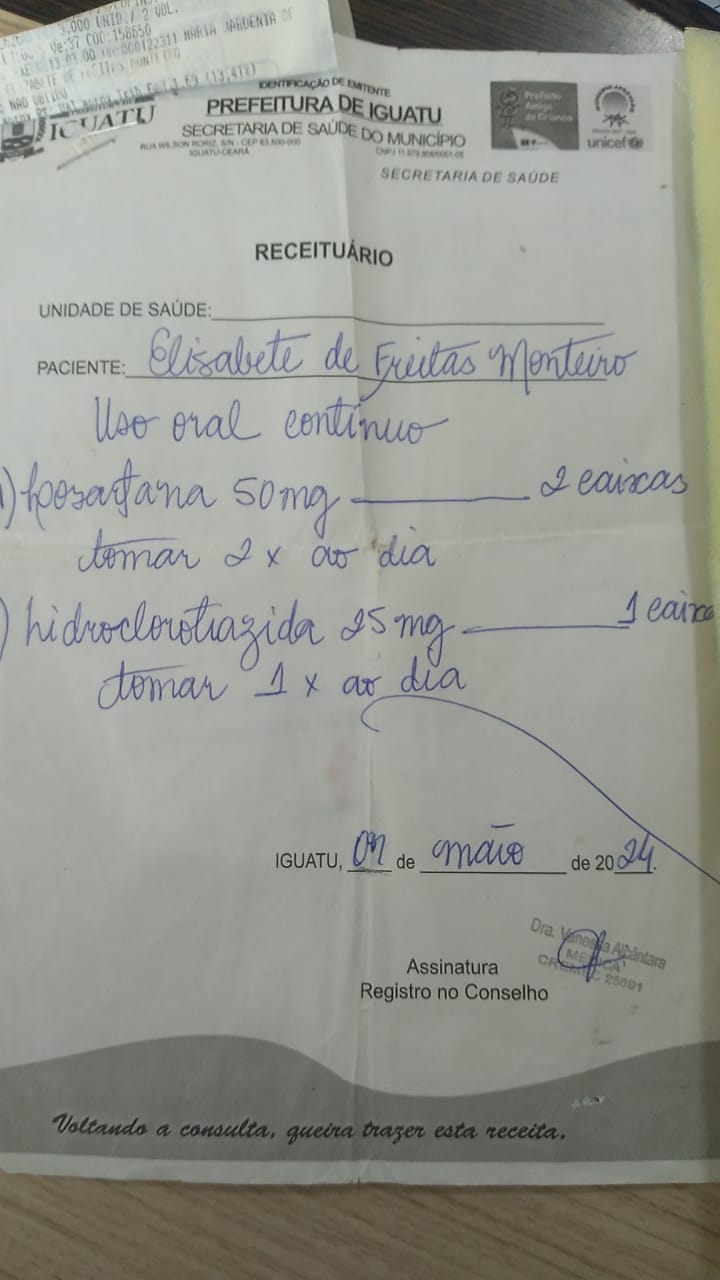 3.000 UNID./ 2 VOL.
Ve:37 COD:158650
000122311 MARIA JARDENIA DE
NAO OBTIDO
(13,41%)
IGUATU
IDENTIFICAÇÃO DE EMITENTE
PREFEITURA DE IGUATU
SECRETARIA DE SAÚDE DO MUNICÍPIO
RUA WILSON RORIZ, S/N - CEP 63.500-000
IGUATU-CEARÁ
SECRETARIA DE SAÚDE
Prefeito
Amigo
da Criança
MUNICÍPIO APROVADO
unicef
RECEITUÁRIO
UNIDADE DE SAÚDE:
PACIENTE: Elisabete de Freitas Monteiro
Uso oral contínuo
) losartana 50mg 2 caixas
tomar 2 x ao dia
) hidroclorotiazida 25mg 1 caixa
tomar 1 x ao dia
IGUATU, de maio de 2024.
Dra. Vanessa Alcântara
MÉDICA
CREMEC 25691
Assinatura
Registro no Conselho
Voltando a consulta, queira trazer esta receita.